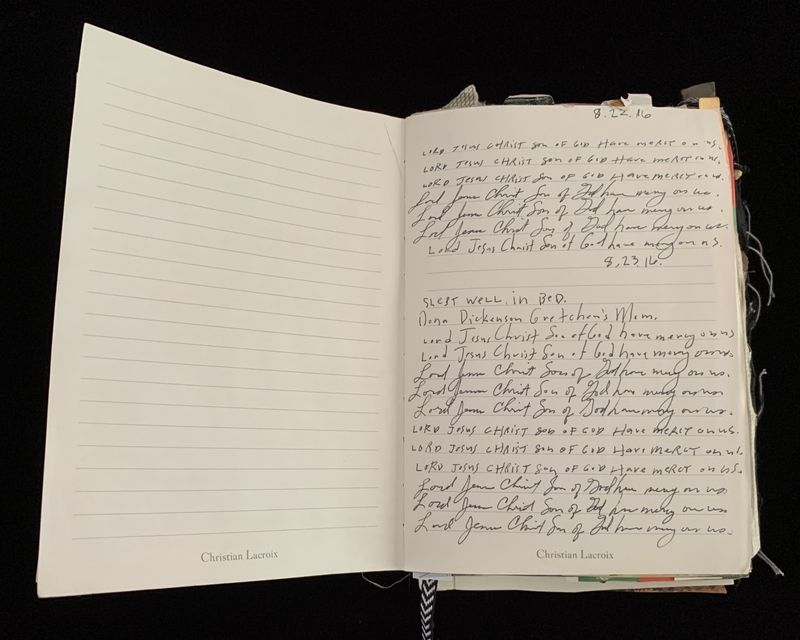 8.22.16
LORD JESUS CHRIST SON OF GOD Have mercy on us.
LORD JESUS CHRIST SON OF GOD Have mercy on us.
LORD JESUS CHRIST SON OF GOD Have mercy on us.
Lord Jesus Christ Son of God have mercy on us.
Lord Jesus Christ Son of God have mercy on us.
Lord Jesus Christ Son of God have mercy on us.
Lord Jesus Christ Son of God have mercy on us.
8.23.16.
SLEPT WELL in BeD.
Dona Dickenson Gretchen's Mom.
Lord Jesus Christ Son of God have mercy on us
Lord Jesus Christ Son of God have mercy on us.
Lord Jesus Christ Son of God have mercy on us.
Lord Jesus Christ Son of God have mercy on us
Lord Jesus Christ Son of God have mercy on us.
LORD JESUS CHRIST SON OF GOD Have MERCY on us.
LORD JESUS CHRIST SON OF GOD Have MERCY on us.
LORD JESUS CHRIST SON OF GOD Have MERCY on us.
Lord Jesus Christ Son of God have mercy on us
Lord Jesus Christ Son of God have mercy on us
Lord Jesus Christ Son of God have mercy on us.
Christian Lacroix
Christian Lacroix